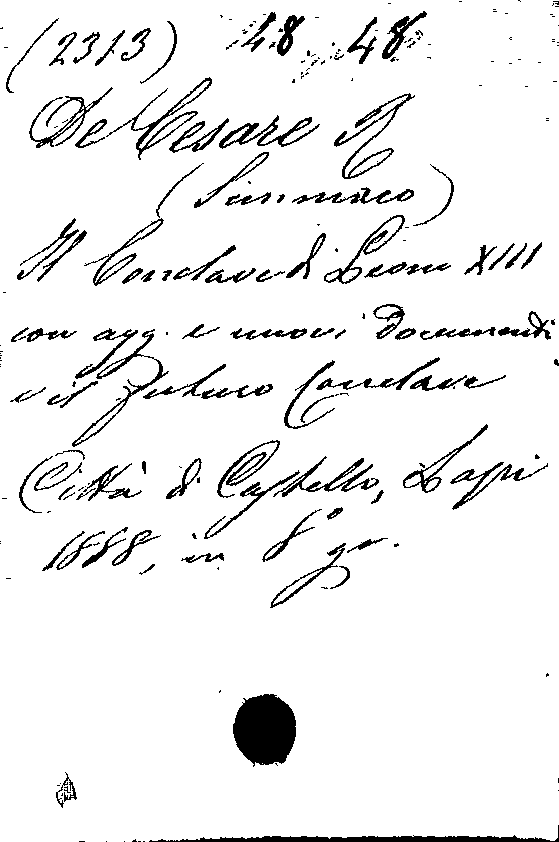 (2313) 48 48
De Cesare R
(Simmaco)
Il Conclave di Leone XIII
con agg. e nuovi Documenti
e il futuro Conclave
Città di Castello, Lapi
1888, in 8° gr.